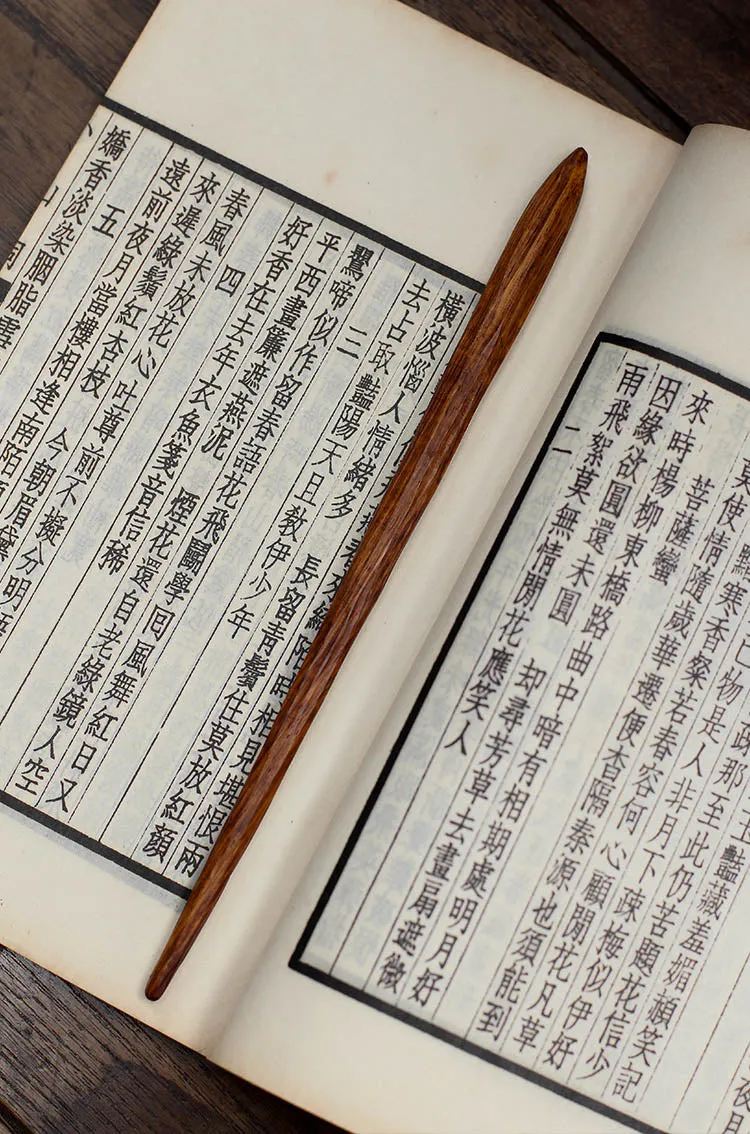 夜月
使情隨歲華遷便杳隔秦源也須能到
寒香粲若春容何心顧閒花凡草
物是人非月下疎梅似伊好
那至此仍苦題花信少
豔藏羞媚賴笑記
菩薩蠻
來時楊柳東橋路曲中暗有相期處明月好
因緣欲圓還未圓 却尋芳草去畫扇遮微
雨飛絮莫無情閒花應笑人
二
陌時相見堪恨兩
橫波惱人情緒多 長留青鬢住莫放紅顏
去占取豔陽天且教伊少年
三
鶯啼似作留春語花飛鬭學回風舞紅日又
平西畫簾遮燕泥 煙花還自老綠鏡人空
好香在去年衣魚箋音信稀
四
春風未放花心吐尊前不擬分明語
來遲綠鬢紅杏枝 今朝眉黛
遠前夜月當樓相逢南陌
五
嬌香淡染胭脂雪